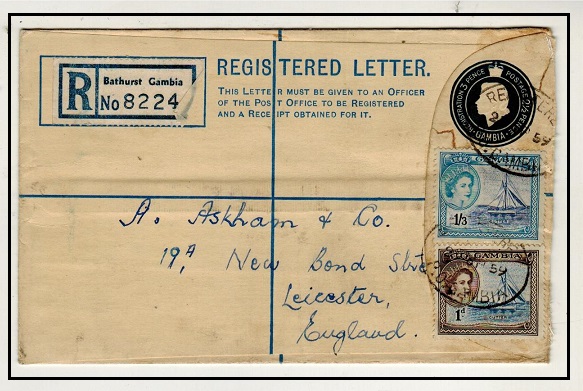 REGISTERED LETTER.
THIS LETTER MUST BE GIVEN TO AN OFFICER
OF THE POST OFFICE TO BE REGISTERED
AND A RECEIPT OBTAINED FOR IT.
R Bathurst Gambia
No 8224
REGISTRATION 3 PENCE POSTAGE 2½ PENCE
GAMBIA
GAMBIA
1/3
A. Askham & Co.
19A New Bond
Leicester,
England.
GAMBIA
1d
59
GAMBIA